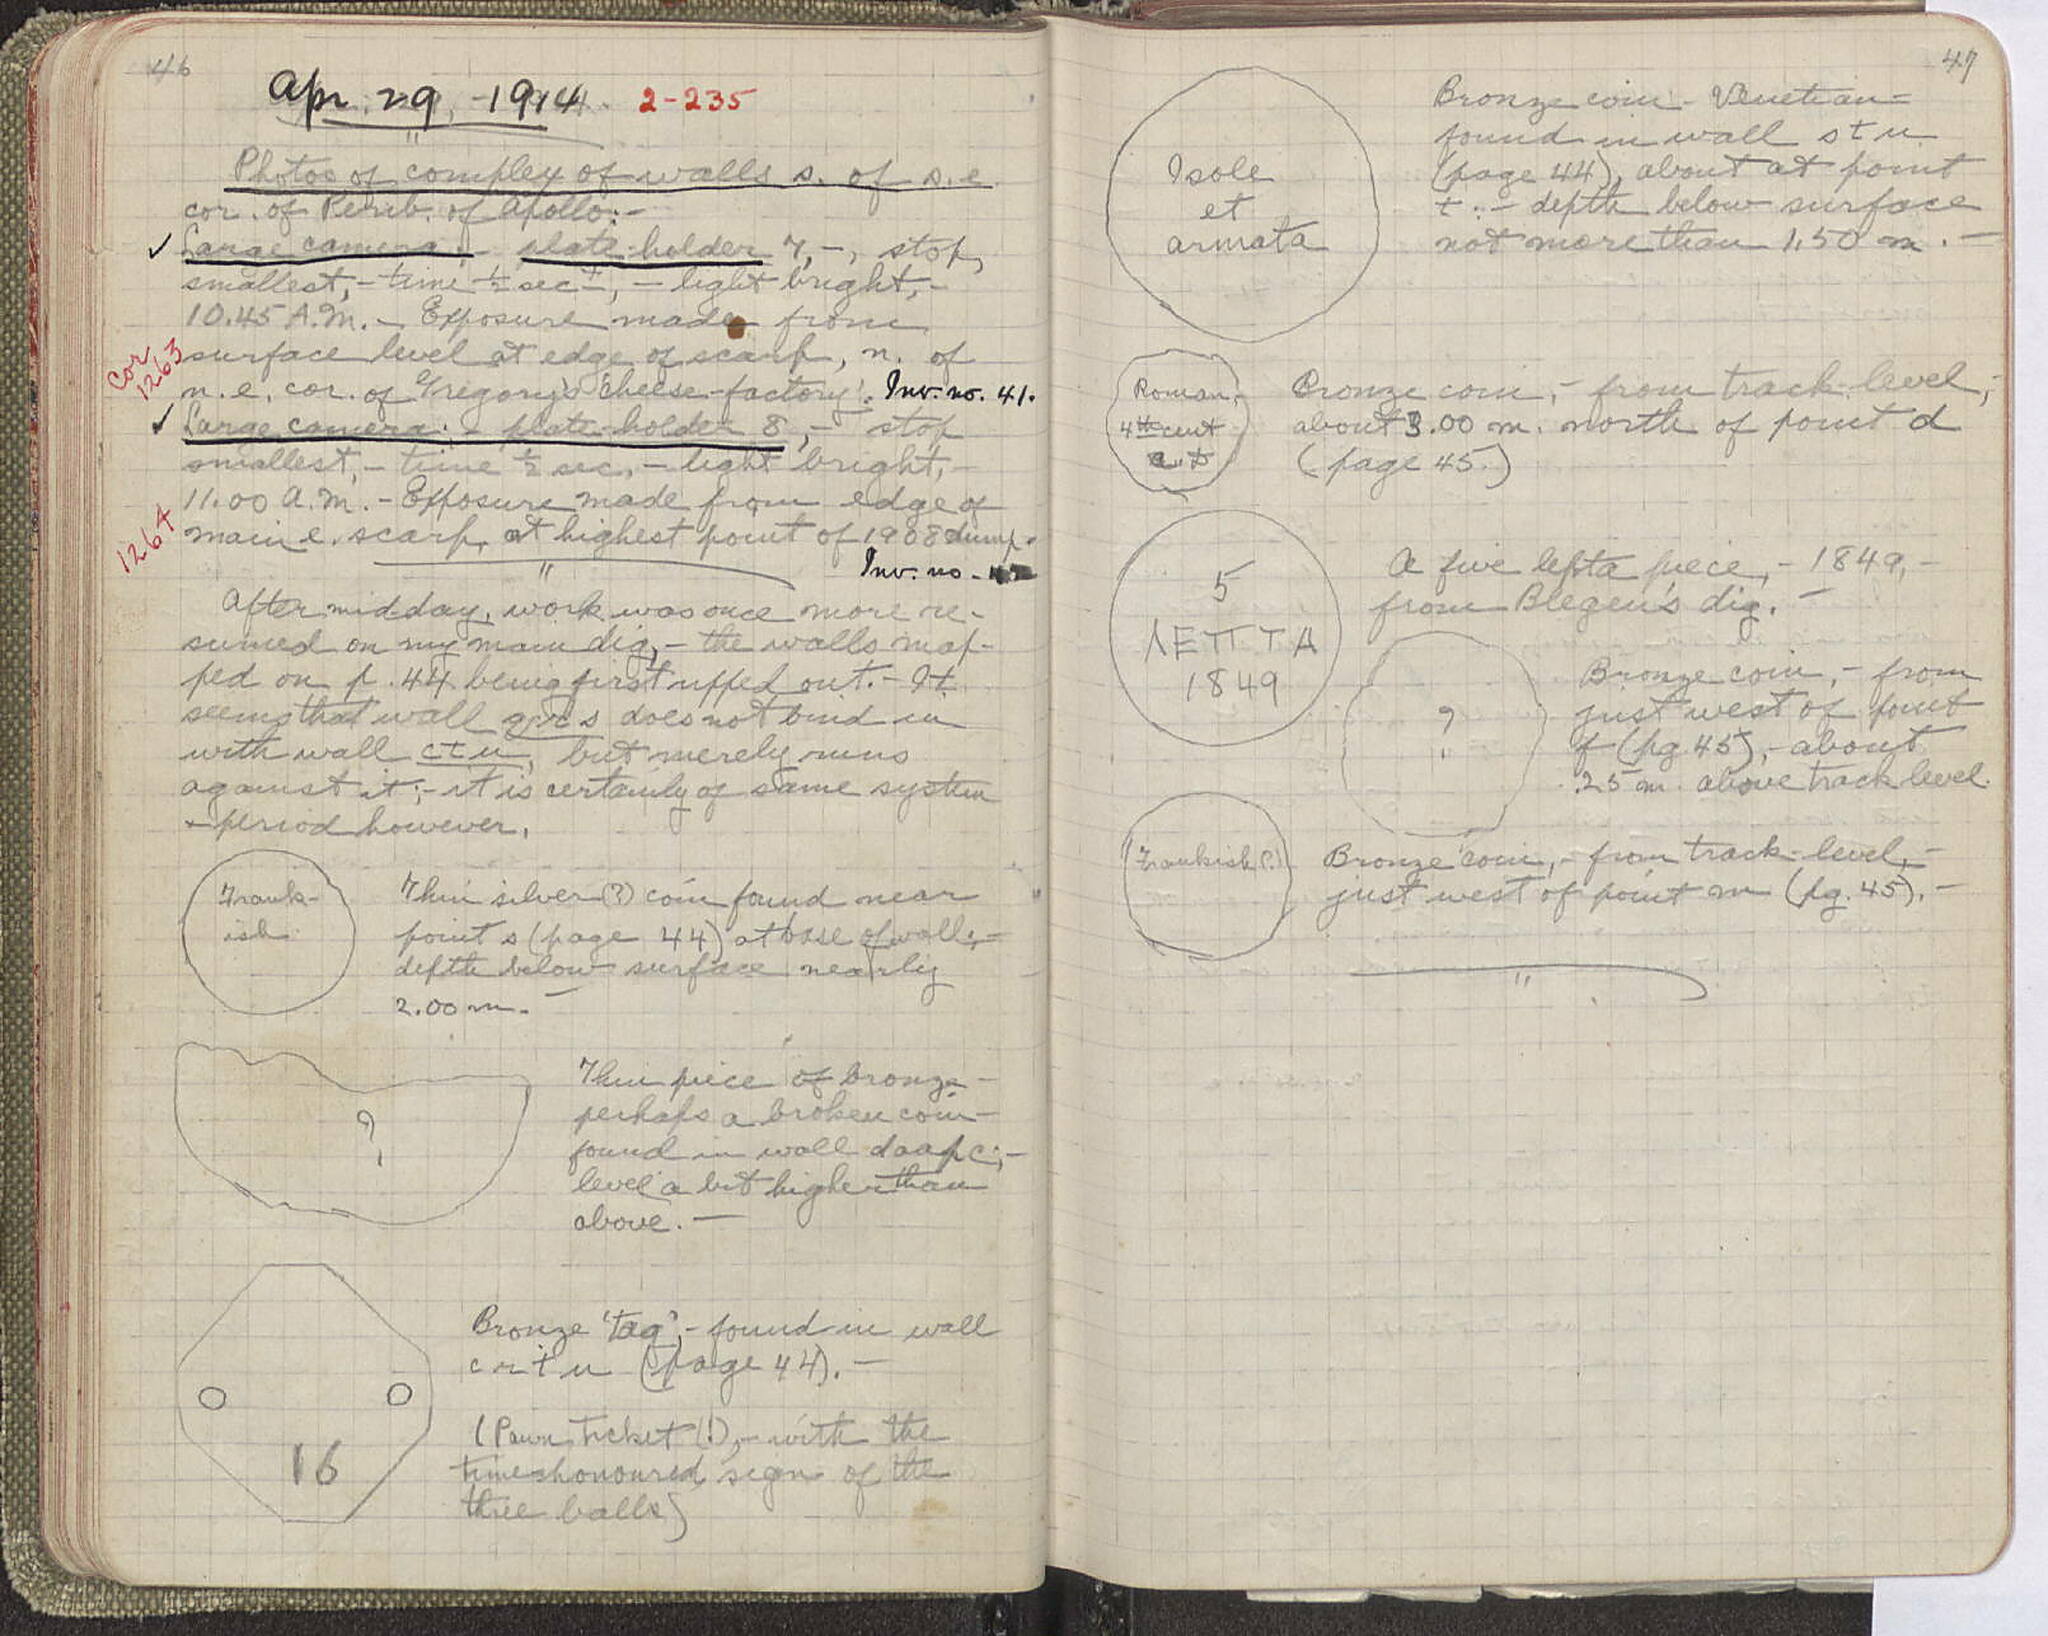 46
Apr. 29, 1914. 2-235
"
Photos of complex of walls s. of s.e.
cor. of Perib. of Apollo:-
✓ Large camera:- plate-holder 7,-, stop,
smallest,- time ½ sec ±, - light bright,-
10.45 A.M. - Exposure made from
surface level at edge of scarp, n. of
n.e. cor. of Gregory's 'cheese-factory'. Inv. no. 41.
cor
1263
✓ Large camera:- plate-holder 8,- stop
smallest,- time ½ sec,- light bright,-
11.00 A.M. - Exposure made from edge of
main e. scarp, at highest point of 1908 dump.
1264
" Inv. no.
After midday, work was once more re-
sumed on my main dig,- the walls map-
ped on p. 44 being first ripped out.- It
seems that wall s does not bind in
with wall c t u, but merely runs
against it;- it is certainly of same system
+ period however.
Frank-
ish
Thin silver (?) coin found near
point s (page 44) at base of wall;-
depth below surface nearly
2.00 m. -
?
Thin piece of bronze-
perhaps a broken coin-
found in wall daapc;-
level a bit higher than
above. -
16
Bronze 'tag',- found in wall
c r t u (page 44). -
(Pawn Ticket (!),- with the
time-honoured sign of the
three balls)
47
Isole
et
armata
Bronze coin - Venetian -
found in wall s t u
(page 44), about at point
t:- depth below surface
not more than 1.50 m. -
Roman,-
4th cent
A.D.
Bronze coin,- from track-level,-
about 3.00 m. north of point d
(page 45.)
5
ΛΕΠΤΑ
1849
A five lepta piece,- 1849,-
from Blegen's dig. -
?
"
Bronze coin,- from
just west of point
f (pg 45),- about
.25 m. above track level.
Frankish (?)
Bronze coin,- from track-level,-
just west of point m (pg. 45). -
"